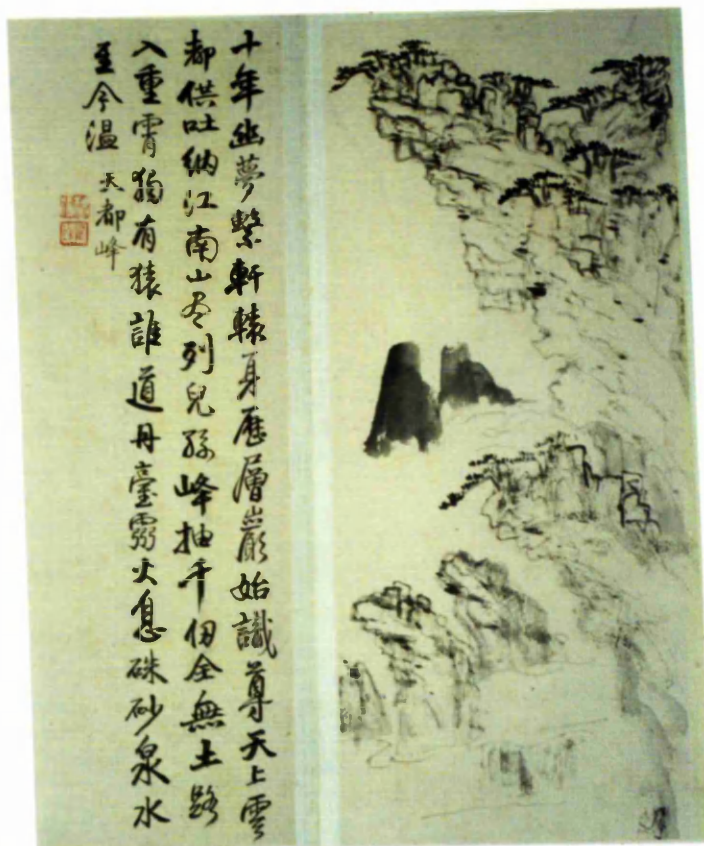 十年幽夢繫軒轅身歷層巖始識尊天上雲
都供吐納江南山盡列兒孫峰抽千仞全無土路
入重霄獨有猿誰道丹臺霧火息硃砂泉水
至今溫 天都峰